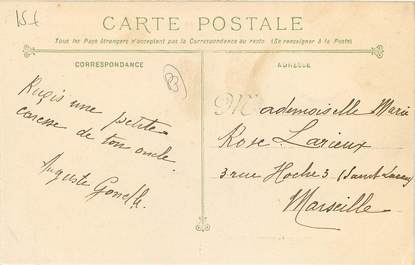 15 f
CARTE POSTALE
Tous les Pays étrangers n'acceptent pas la Correspondance au recto (Se renseigner à la Poste)
CORRESPONDANCE
ADRESSE
Reçois une petite
caresse de ton oncle.
Auguste
Mademoiselle Marie
Rose Larieux
3 rue Hoche 3 (Saint Lazare)
Marseille